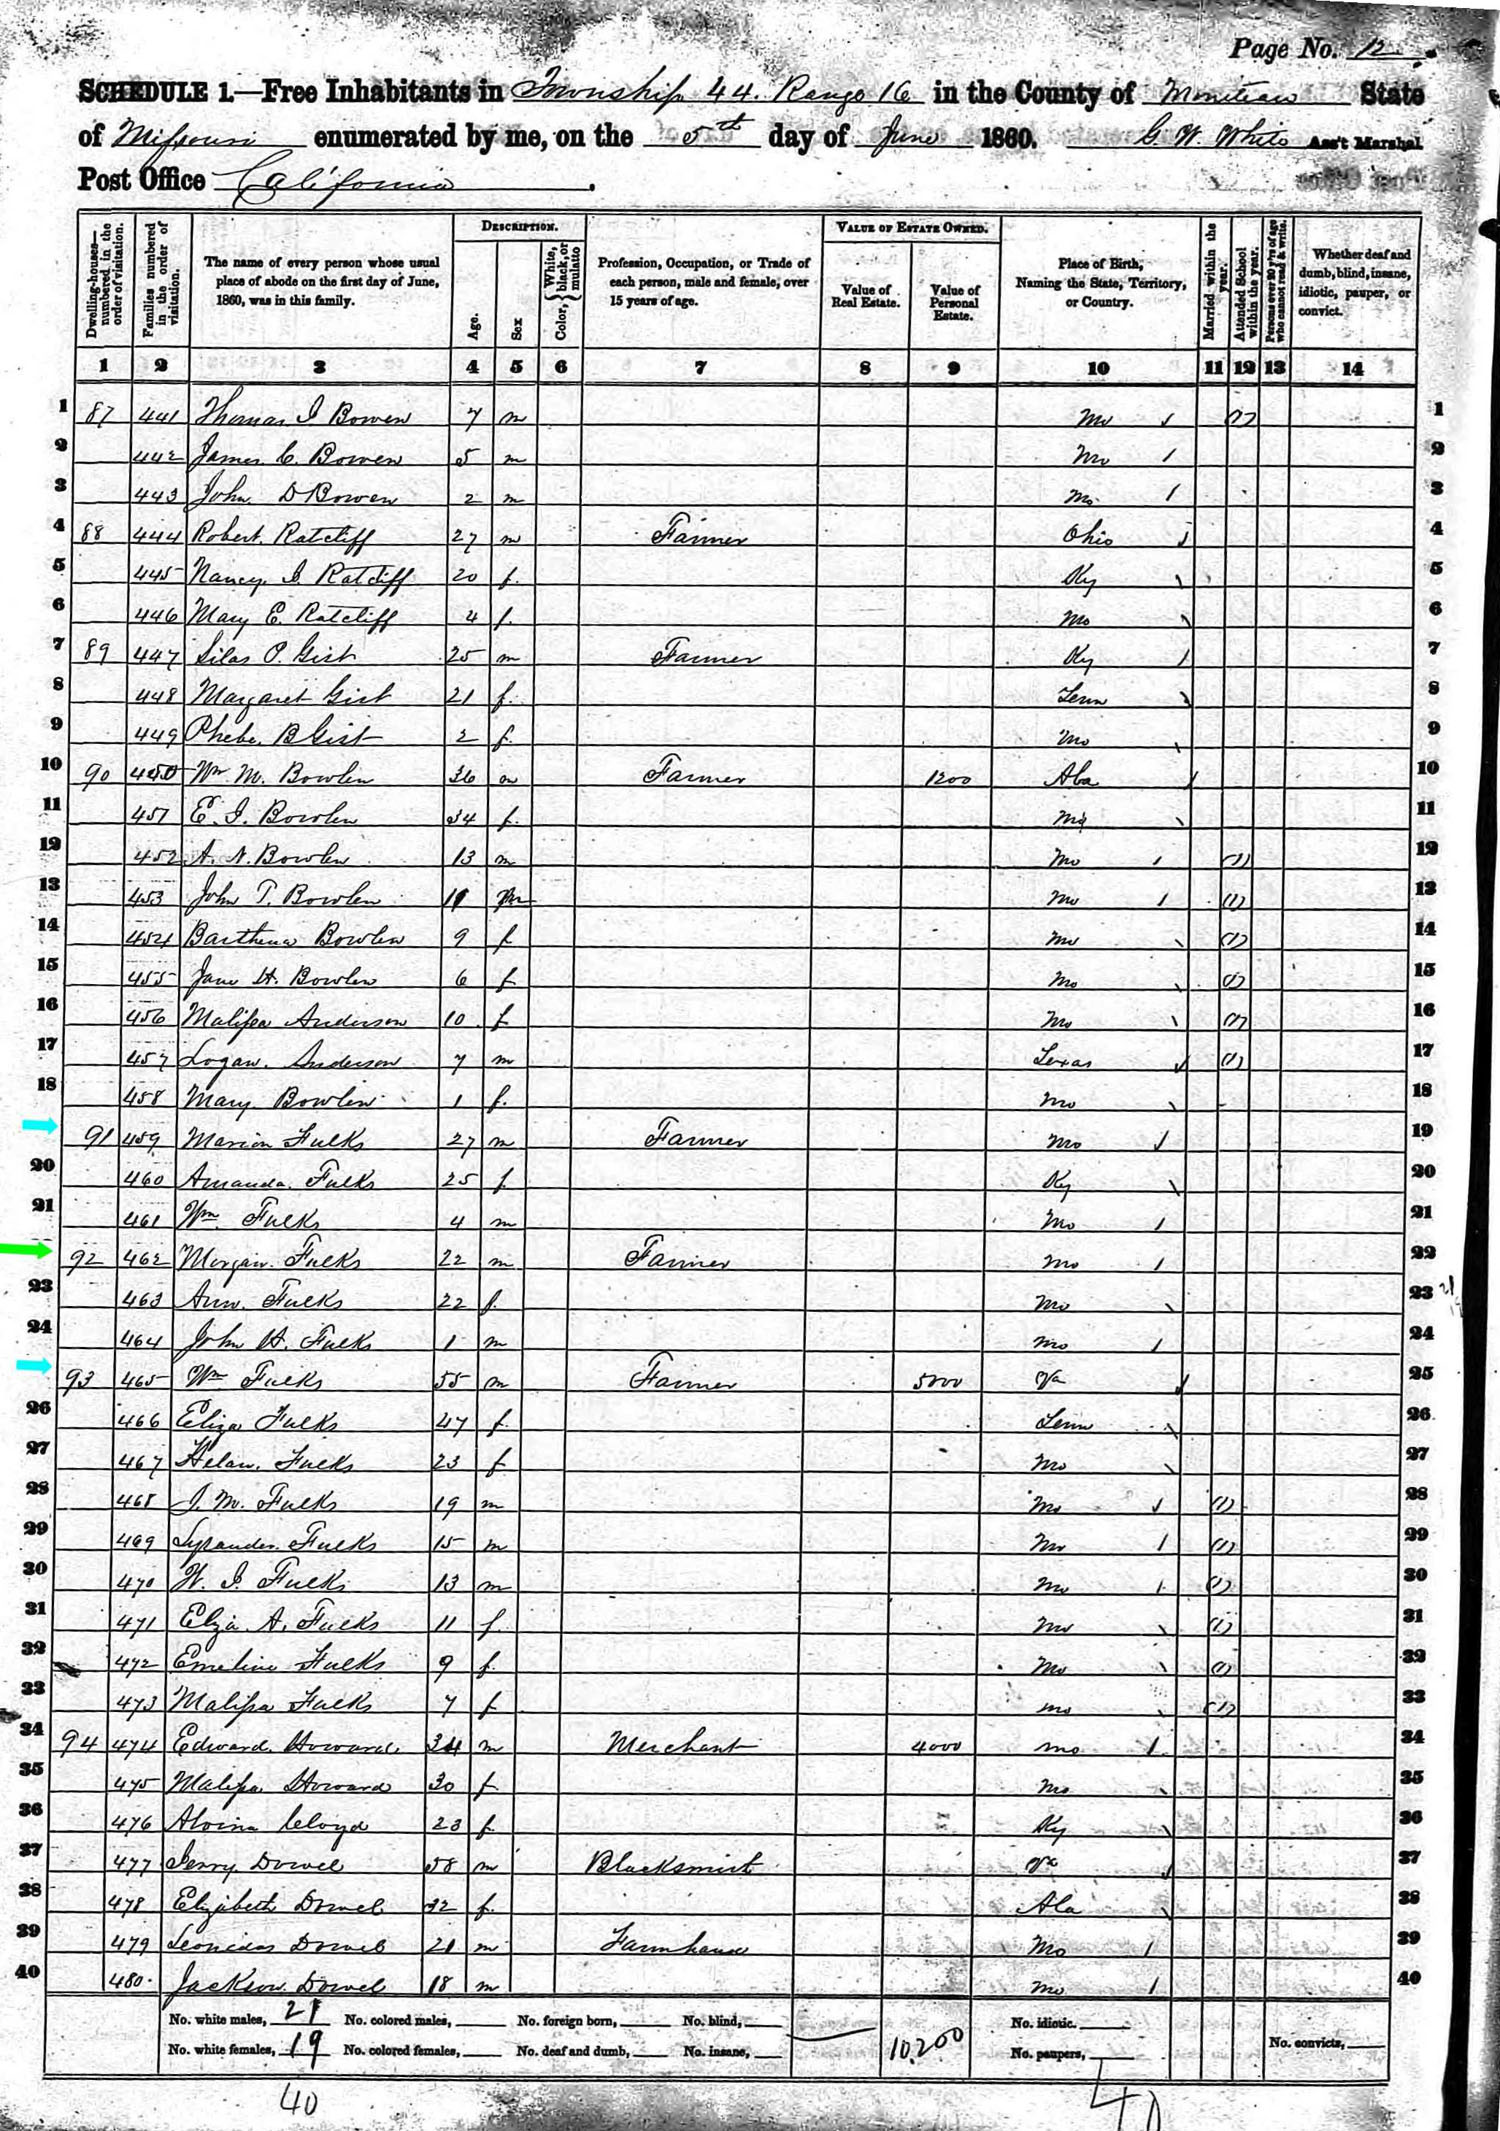 Page No. 12
SCHEDULE 1.—Free Inhabitants in Township 44. Range 16 in the County of Moniteau State
of Missouri enumerated by me, on the 5th day of June 1860. G. W. White Ass't Marshal
Post Office California.
Dwelling-houses—numbered in the order of visitation. Families numbered in the order of visitation. The name of every person whose usual place of abode on the first day of June, 1860, was in this family. DESCRIPTION. Age. Sex Color, White, black, or mulatto Profession, Occupation, or Trade of each person, male and female, over 15 years of age. VALUE OF ESTATE OWNED. Value of Real Estate. Value of Personal Estate. Place of Birth, Naming the State, Territory, or Country. Married within the year. Attended School within the year. Persons over 20 y'rs of age who cannot read & write. Whether deaf and dumb, blind, insane, idiotic, pauper, or convict.
1 2 3 4 5 6 7 8 9 10 11 12 13 14
1 87 441 Thomas J Bowen 7 m Mo / (1) 1
2 442 James C. Bowen 5 m Mo / 2
3 443 John D Bowen 2 m Mo / 3
4 88 444 Robert Ratcliff 27 m Farmer Ohio / 4
5 445 Nancy J Ratcliff 20 f. Ky \ 5
6 446 Mary E. Ratcliff 4 f. Mo \ 6
7 89 447 Silas P. Gist 25 m Farmer Ky / 7
8 448 Margaret Gist 21 f. Tenn \ 8
9 449 Phebe. B Gist 2 f. Mo \ 9
10 90 450 Wm M. Bowlen 36 m Farmer 1200 Ala / 10
11 451 E. J. Bowlen 34 f. Mo \ 11
12 452 A. N. Bowlen 13 m Mo / (1) 12
13 453 John T. Bowlen 11 m Mo / (1) 13
14 454 Barthena Bowlen 9 f Mo \ (1) 14
15 455 Jane H. Bowlen 6 f Mo \ (1) 15
16 456 Malissa Anderson 10 f Mo \ (1) 16
17 457 Logan. Anderson 7 m Texas / (1) 17
18 458 Mary Bowlen 1 f. Mo \ 18
91 459 Marion Fulks 27 m Farmer Mo / 19
20 460 Amanda. Fulks 25 f. Ky \ 20
21 461 Wm. Fulks 4 m Mo / 21
92 462 Morgan. Fulks 22 m Farmer Mo / 22
23 463 Ann. Fulks 22 f. Mo \ 23
24 464 John H. Fulks 1 m Mo / 24
93 465 Wm Fulks 55 m Farmer 5000 Va / 25
26 466 Eliza Fulks 47 f. Tenn \ 26
27 467 Helan. Fulks 23 f Mo \ 27
28 468 J. M. Fulks 19 m Mo / (1) 28
29 469 Lysander. Fulks 15 m Mo / (1) 29
30 470 W. J. Fulks 13 m Mo / (1) 30
31 471 Eliza A. Fulks 11 f. Mo \ (1) 31
32 472 Emeline Fulks 9 f. Mo \ (1) 32
33 473 Malissa Fulks 7 f Mo \ (1) 33
34 94 474 Edward. Howard. 34 m Merchant 4000 Mo / 34
35 475 Malissa. Howard 30 f Mo \ 35
36 476 Alvina Cloyd 23 f. Ky \ 36
37 477 Jerry Dowel 58 m Blacksmith Va / 37
38 478 Elizabeth Dowel 32 f. Ala \ 38
39 479 Leonidas Dowel 21 m Farmhand Mo / 39
40 480 Jackson Dowel 18 m Mo / 40
No. white males, 21 No. colored males, No. foreign born, No. blind, No. idiotic.
No. white females, 19 No. colored females, No. deaf and dumb, No. insane, 10,200 No. paupers, No. convicts,
40 40